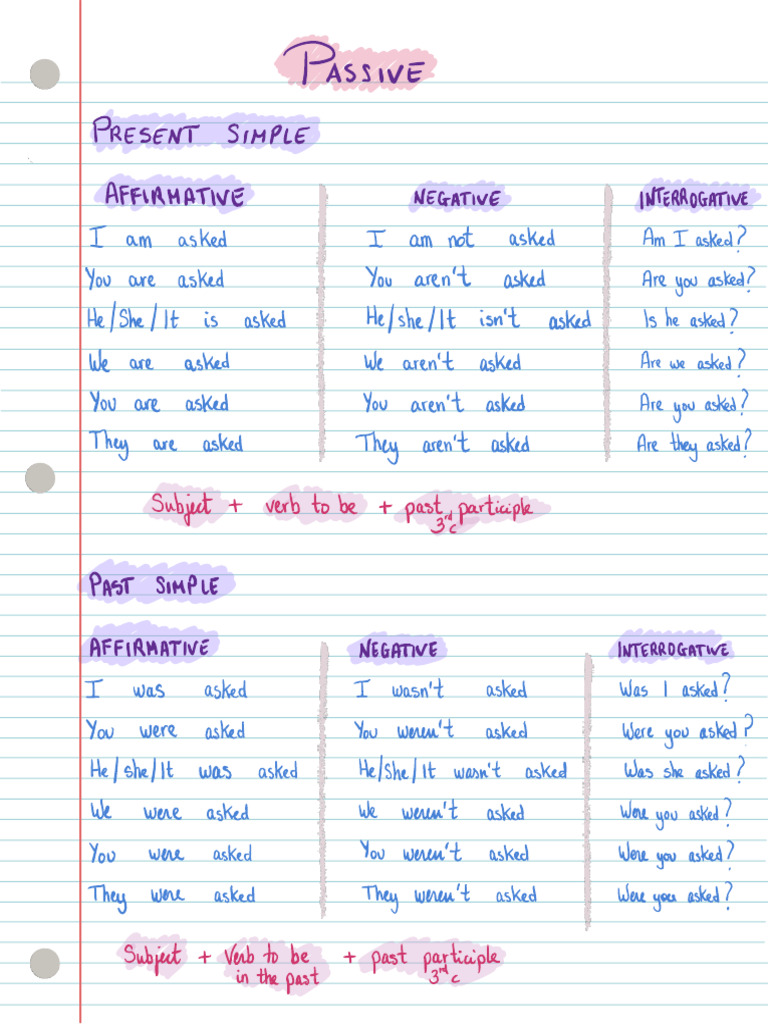 PASSIVE
PRESENT SIMPLE
AFFIRMATIVE NEGATIVE INTERROGATIVE
I am asked I am not asked Am I asked?
You are asked You aren't asked Are you asked?
He/She/It is asked He/she/It isn't asked Is he asked?
We are asked We aren't asked Are we asked?
You are asked You aren't asked Are you asked?
They are asked They aren't asked Are they asked?
Subject + verb to be + past participle
3rd c
PAST SIMPLE
AFFIRMATIVE NEGATIVE INTERROGATIVE
I was asked I wasn't asked Was I asked?
You were asked You weren't asked Were you asked?
He/she/It was asked He/She/It wasn't asked Was she asked?
We were asked We weren't asked Were you asked?
You were asked You weren't asked Were you asked?
They were asked They weren't asked Were you asked?
Subject + Verb to be + past participle
in the past 3rd c